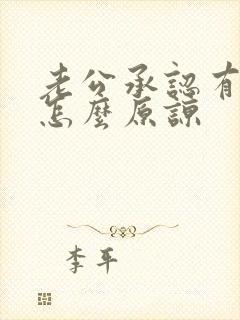 老公承認有
怎麼原諒
李平